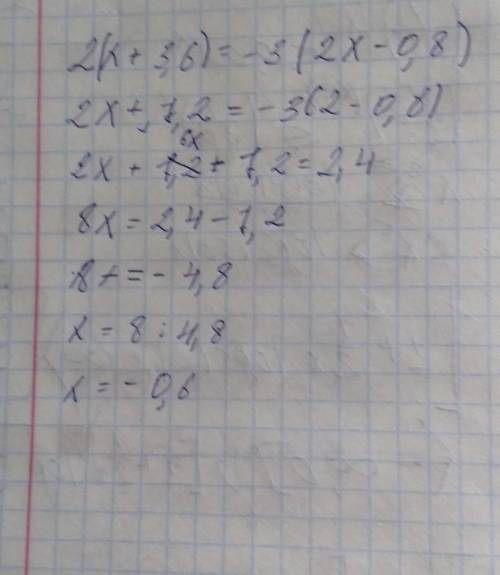 2(x + 3,6) = -3(2x - 0,8)
2x + 7,2 = -3(2 - 0,8)
2x + 6x + 7,2 = 2,4
8x = 2,4 - 7,2
8x = - 4,8
x = 8 : 4,8
x = - 0,6